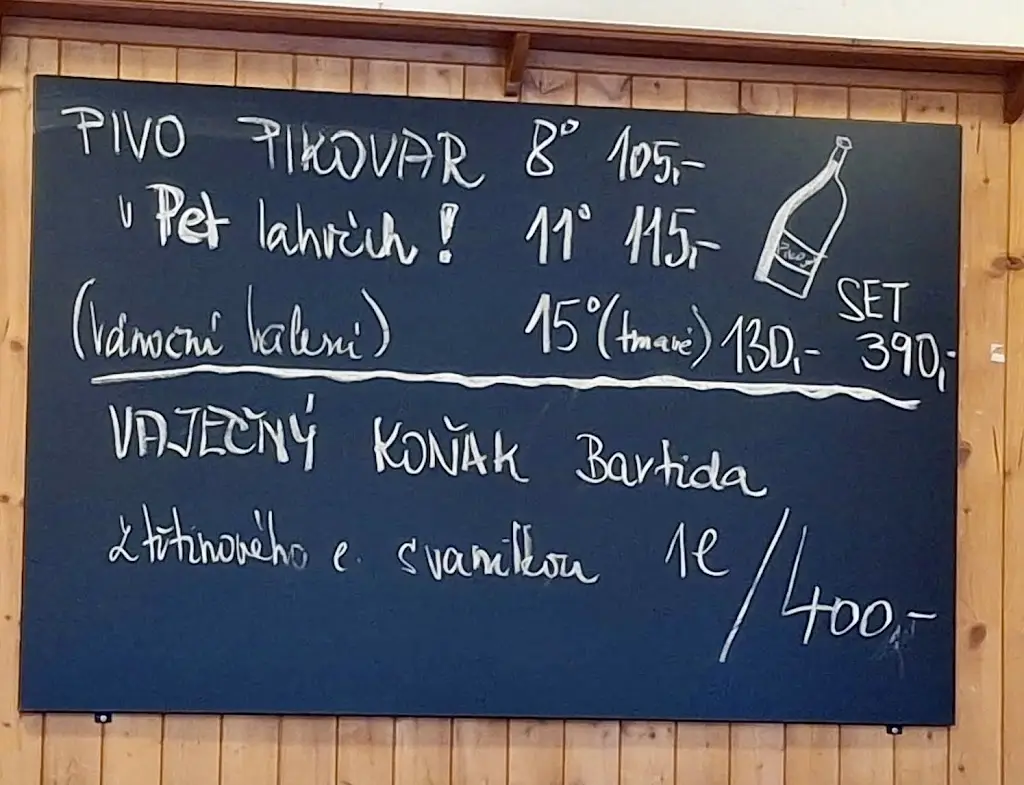 PIVO PIKOVAR 8° 105,-
v Pet lahvích! 11° 115,-
(Vánoční balení) 15° (tmavé) 130,-
SET
390,-
VAJEČNÝ KOŇAK Bartida
z třtinového c. s vanilkou 1l / 400,-